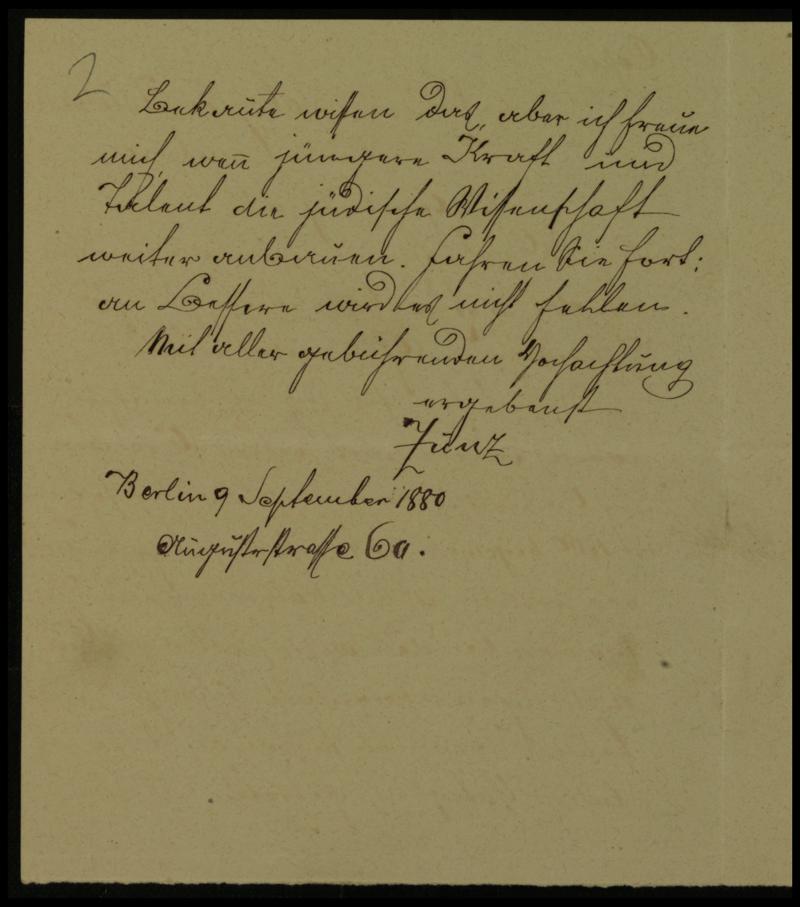 2
Bekannte wissen das, aber ich freue
mich, wen̄ jüngere Kraft und
Talent die jüdische Wissenschaft
weiter anbauen. Fahren Sie fort:
an Lesern wird es nicht fehlen.
Mit aller gebührenden Hochachtung
ergebenst
Zunz
Berlin 9 September 1880
Auguststrasse 60.